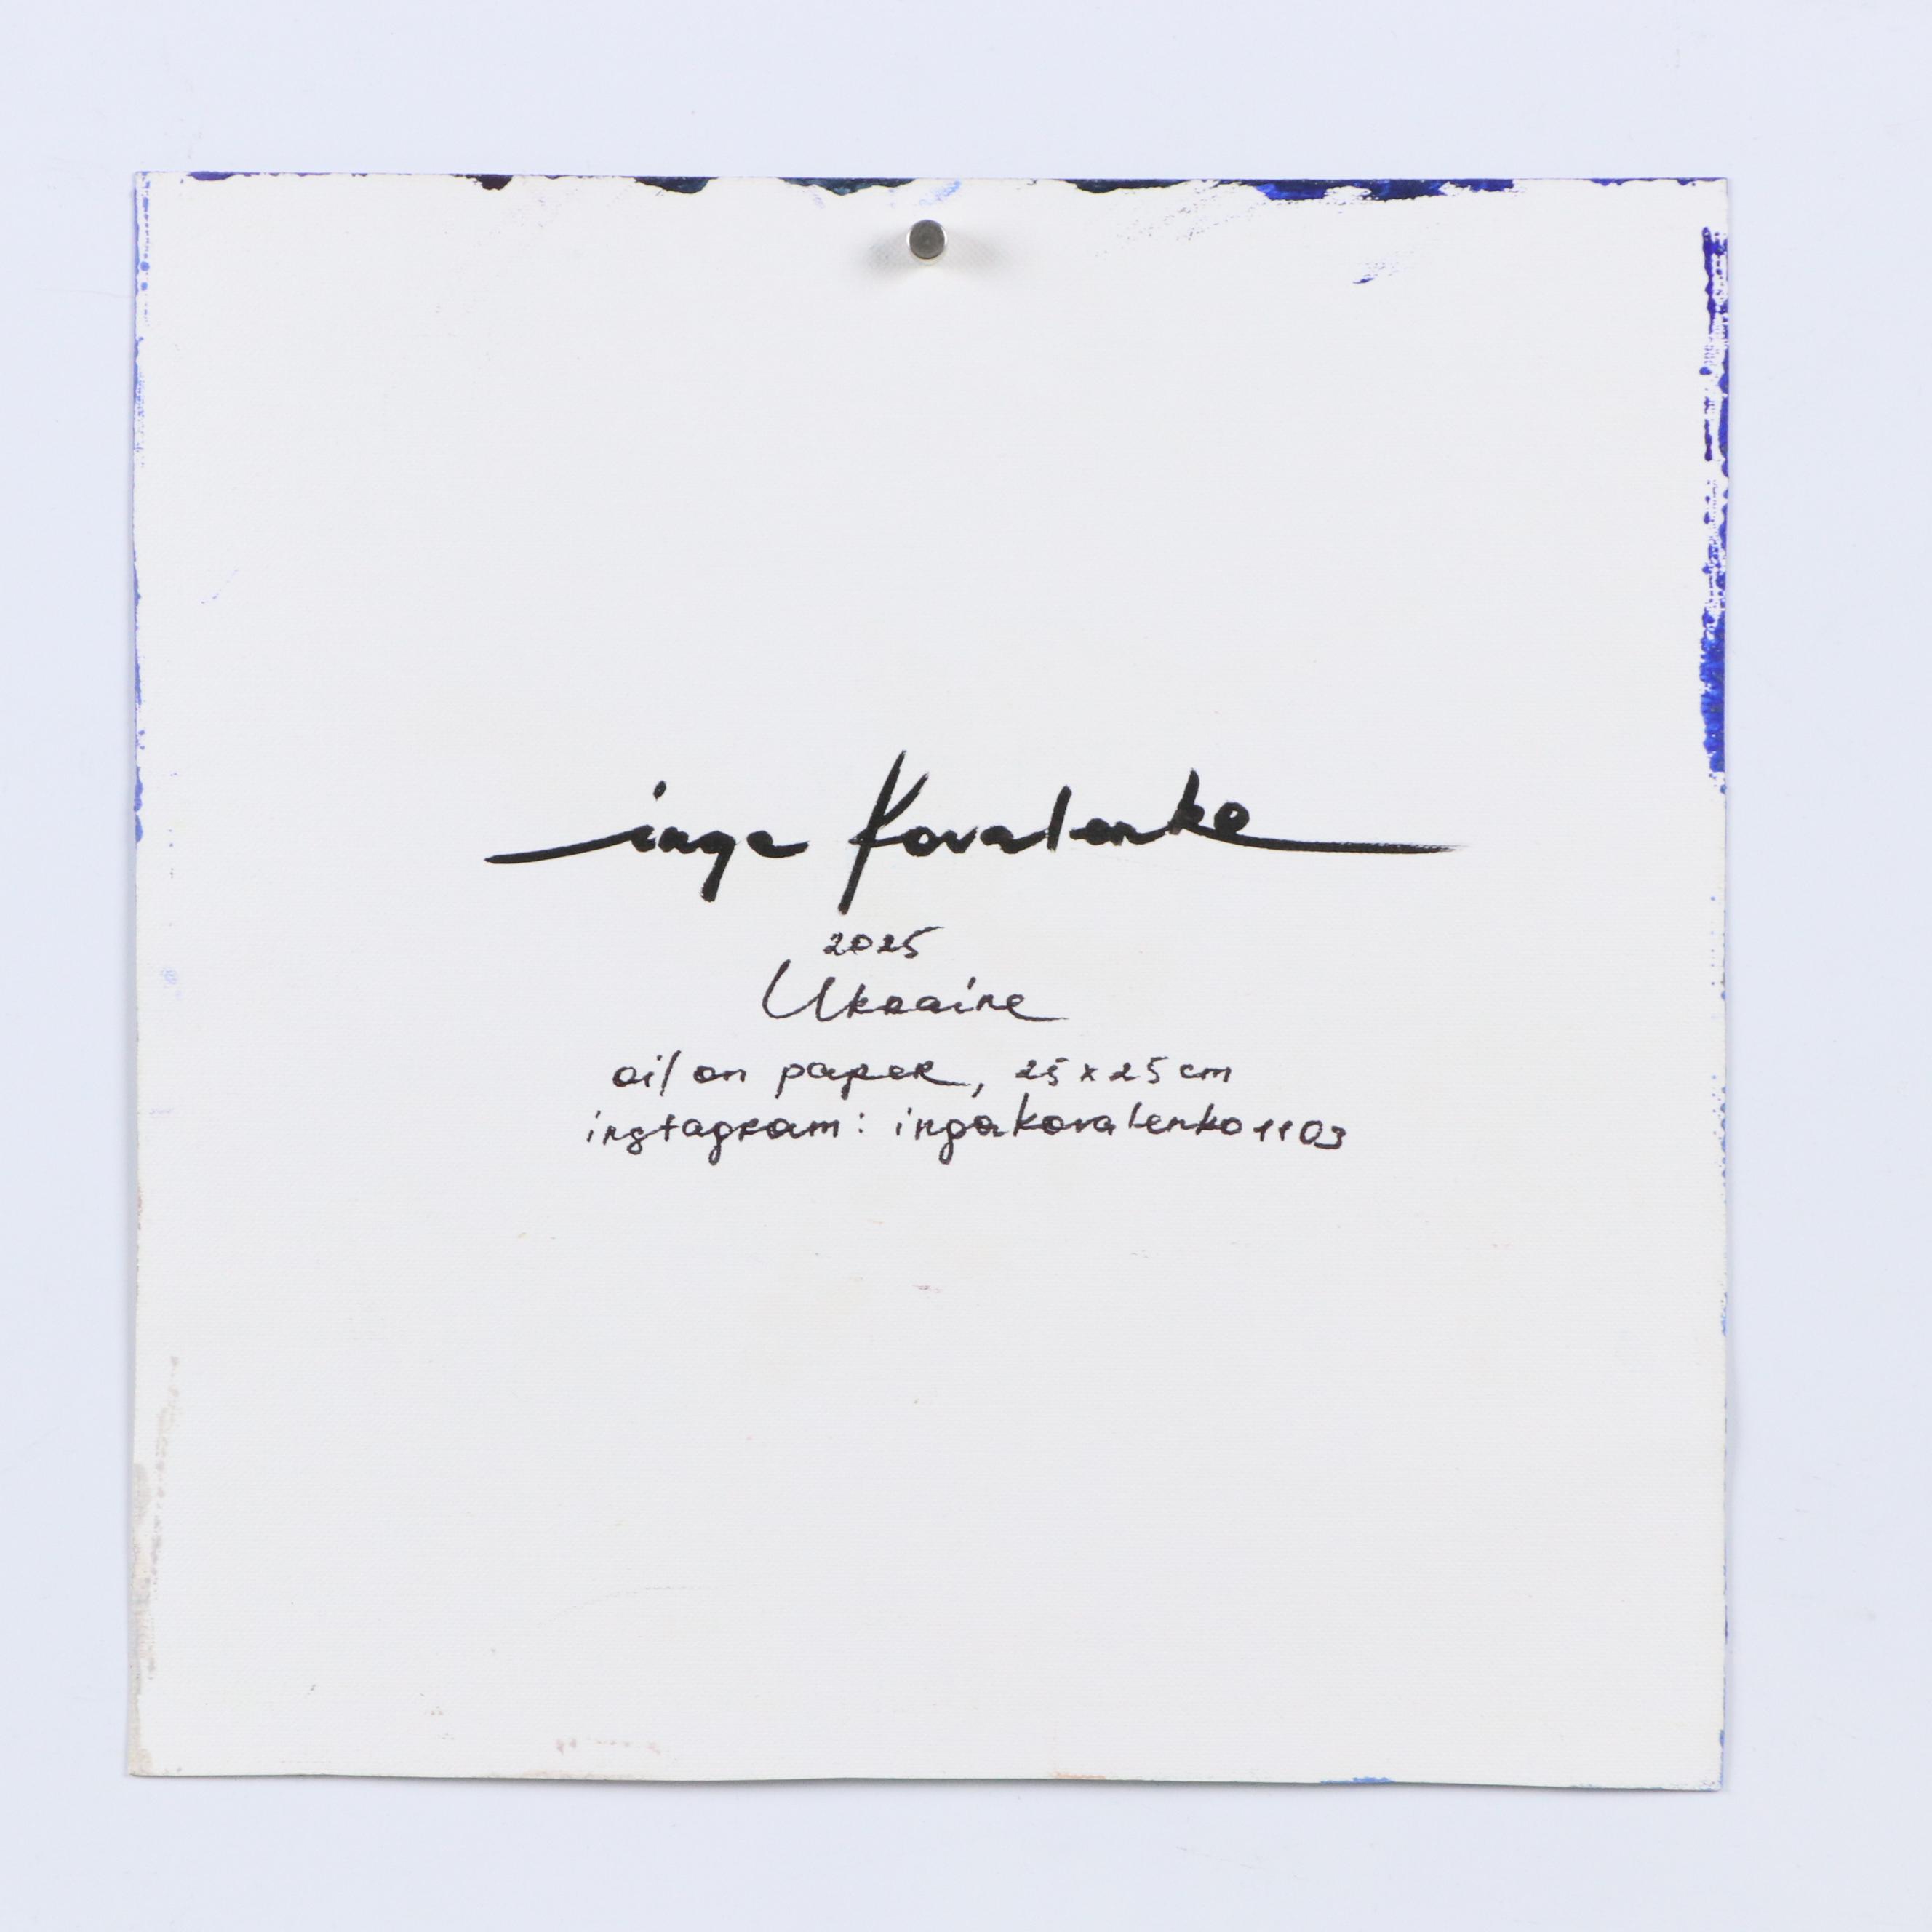 inga Kovalenko
2025
Ukraine
oil on paper, 25 x 25 cm
instagram: ingakovalenko1103